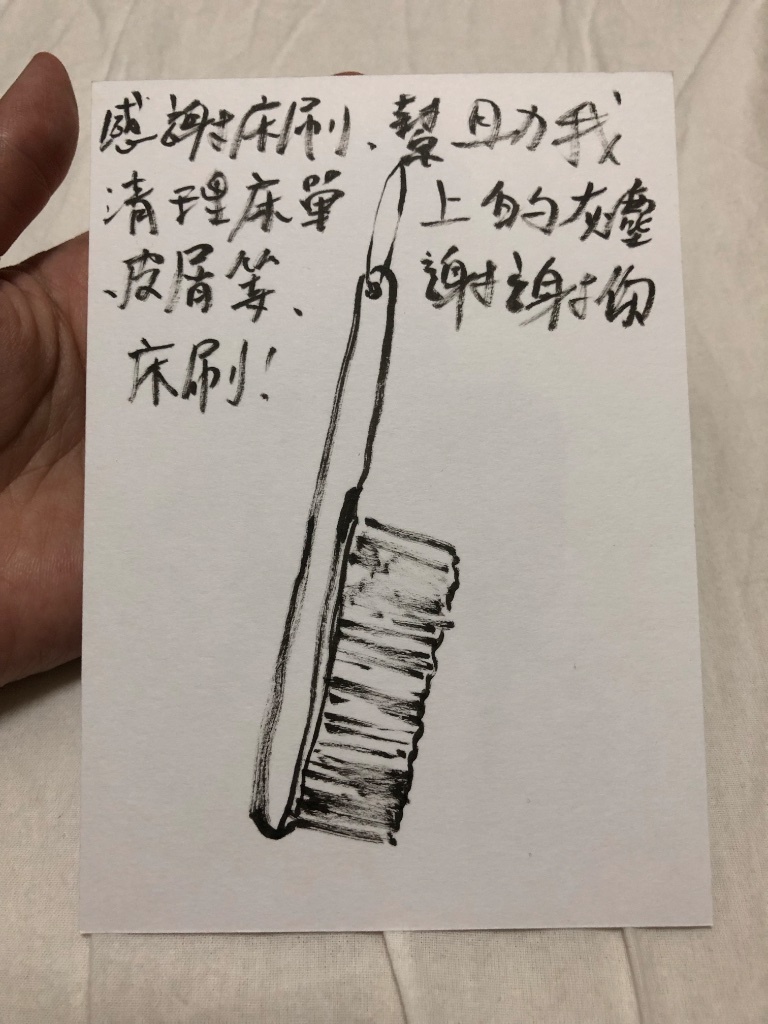 感謝床刷、幫助我
清理床單上的灰塵
皮屑等、謝謝你
床刷!